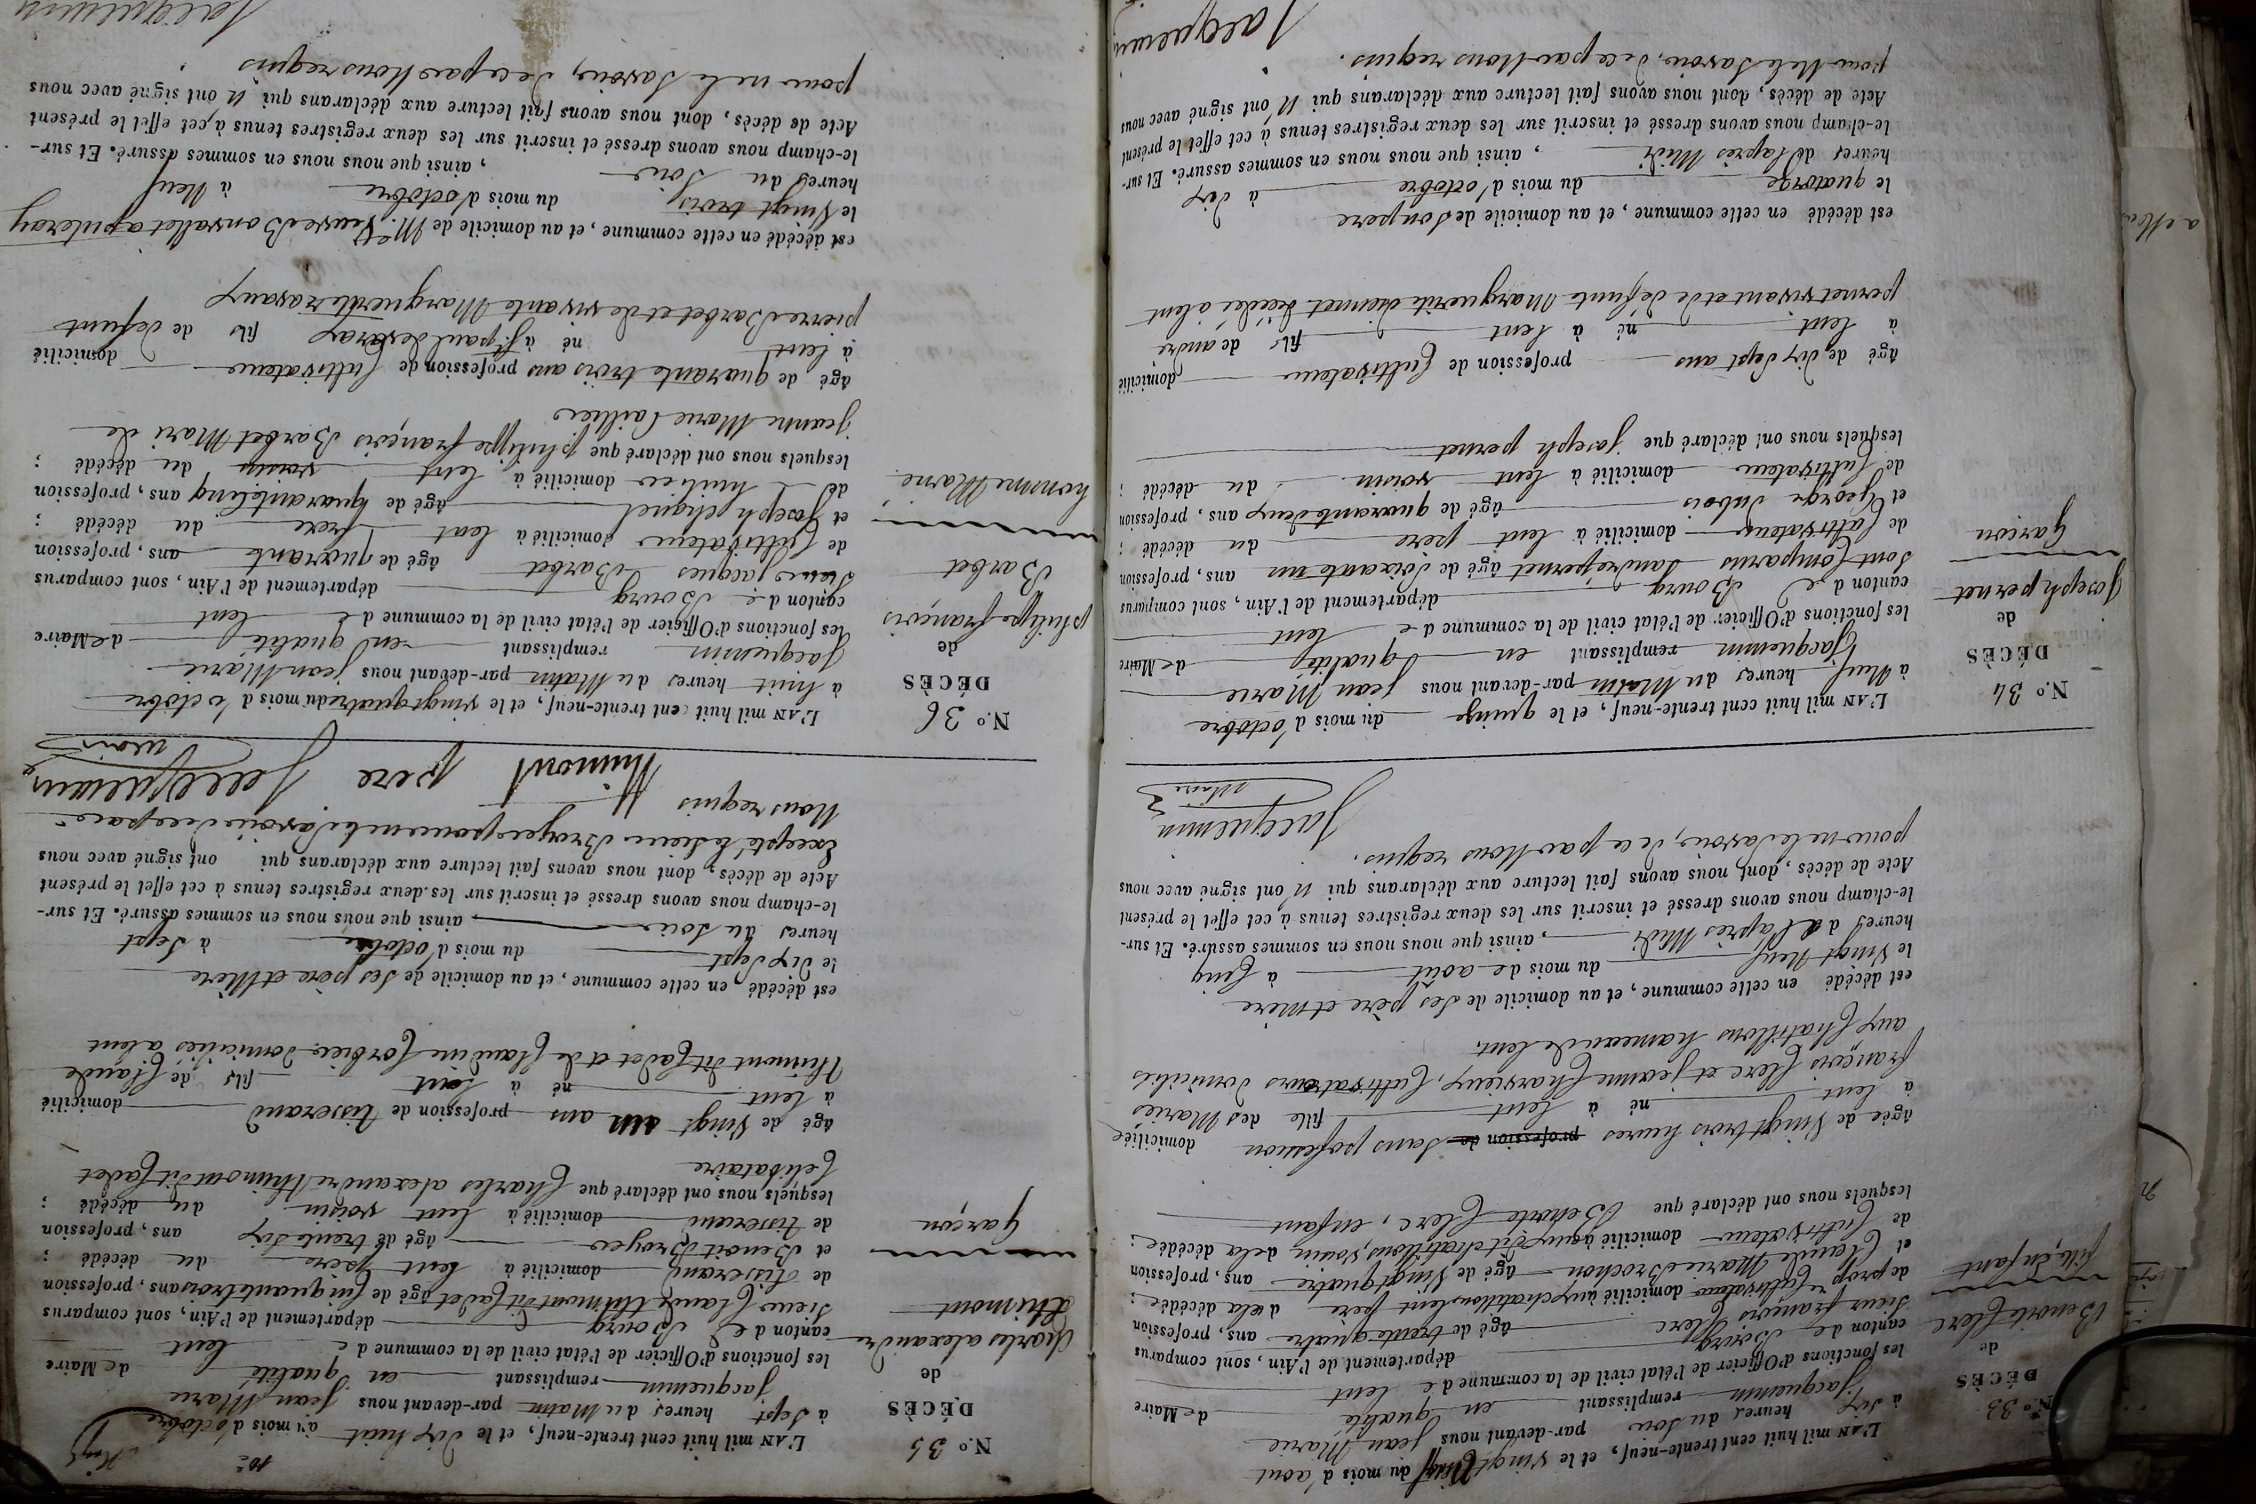 N.º 33
DÉCÈS
de
Benoite Clerc
fille, enfant
L'AN mil huit cent trente-neuf, et le vingt Neuf du mois d'aout
à six heures du Soir par-devant nous jean Marie
Jacquemin remplissant en qualité de Maire
les fonctions d'Officier de l'état civil de la commune de lent
canton de Bourg département de l'Ain, sont comparus
Sieur françois Clerc âgé de trente quatre ans, profession
de prop.re Cultivateur domicilié aux chatillons lent père de la décédée ;
et Claude Marie Brochon âgé de Vingt quatre ans, profession
de Cultivateur domicilié à aux dit chatillons, voisin de la décédée ;
lesquels nous ont déclaré que Benoite Clerc, enfant
âgée de Vingt trois heures profession de Sans profession domiciliée
à lent né à lent fille des Mariés
françois Clerc et jeanne Charvieux, Cultivateurs domiciliés
aux Chatillons hameau de lent.
est décédé en celle commune, et au domicile de Ses père et mère
le Vingt Neuf du mois de août à Cinq
heures d el'après Midi, ainsi que nous nous en sommes assuré. Et sur-
le-champ nous avons dressé et inscrit sur les deux registres tenus à cet effet le présent
Acte de décès, dont nous avons fait lecture aux déclarans qui N' ont signé avec nous
pour ne le Savoir, de ce par Nous requis.
Jacquemin
Maire
N.º 34
DÉCÈS
de
Joseph pernet
Garçon
L'AN mil huit cent trente-neuf, et le quinze du mois d'octobre
à Neuf heures du Matin par-devant nous jean Marie
Jacquemin remplissant en qualité de Maire
les fonctions d'Officier de l'état civil de la commune de lent
canton de Bourg département de l'Ain, sont comparus
Sont Comparus andré pernet âgé de Soixante un ans, profession
de Cultivateur domicilié à lent père du décédé ;
et George Dubois âgé de quarante deux ans, profession
de Cultivateur domicilié à lent voisin du décédé ;
lesquels nous ont déclaré que joseph pernet
âgé de dix Sept ans profession de Cultivateur domicilié
à lent né à lent fils de andre
pernet vivant et de defunte Marguerite decédée a lent
est décédé en celle commune, et au domicile de Son pere
le quatorze du mois d'octobre à dix
heures de l'après Midi, ainsi que nous nous en sommes assuré. Et sur-
le-champ nous avons dressé et inscrit sur les deux registres tenus à cet effet le présent
Acte de décès, dont nous avons fait lecture aux déclarans qui N' ont signé avec nous
pour Ne le Savoir, de ce par Nous requis.
Jacquemin
N.º 35
DÉCÈS
de
Charles alexandre
thimont
Garçon
L'AN mil huit cent trente-neuf, et le dix huit du mois d'octobre
à Sept heures du Matin par-devant nous jean Marie
jacquemin remplissant en qualité de Maire
les fonctions d'Officier de l'état civil de la commune de lent
canton de Bourg département de l'Ain, sont comparus
Sieur Claude thimont dit Cadet âgé de Cinquante trois ans, profession
de tisserand domicilié à lent pere du décédé ;
et Benoit Broyer âgé de trente Six ans, profession
de tisserand domicilié à lent voisin du décédé ;
lesquels nous ont déclaré que Charles alexandre thimont dit Cadet
Celibataire
âgé de Vingt un ans profession de tisserand domicilié
à lent né à lent fils de Claude
thimont dit Cadet et de Claudine domiciliés a lent
est décédé en celle commune, et au domicile de Ses père et Mère
le dix Sept du mois d'octobre à Sept
heures du Soir ainsi que nous nous en sommes assuré. Et sur-
le-champ nous avons dressé et inscrit sur les deux registres tenus à cet effet le présent
Acte de décès, dont nous avons fait lecture aux déclarans qui ont signé avec nous
Excepté le Sieur Broyer pour ne le Savoir de ce par
Nous requis
Thimont pere Jacquemin
maire
N.º 36
DÉCÈS
de
philippe françois
Barbet
homme Marié
L'AN mil huit cent trente-neuf, et le vingt quatre du mois d'octobre
à huit heures du Matin par-devant nous jean Marie
Jacquemin remplissant en qualité de Maire
les fonctions d'Officier de l'état civil de la commune de lent
canton de Bourg département de l'Ain, sont comparus
Sieur jacques Barbet âgé de quarante ans, profession
de Cultivateur domicilié à lent frere du décédé ;
et joseph âgé de quarante cinq ans, profession
de domicilié à lent voisin du décédé ;
lesquels nous ont déclaré que philippe françois Barbet Mari de
jeanne Marie
âgé de quarante trois ans profession de Cultivateur domicilié
à lent né à St paul de varax fils de defunt
pierre Barbet et de vivante Marguerite
est décédé en celle commune, et au domicile de M.e V.e Veuve Bonvallet
le Vingt trois du mois d'octobre à Neuf
heures du Soir, ainsi que nous nous en sommes assuré. Et sur-
le-champ nous avons dressé et inscrit sur les deux registres tenus à cet effet le présent
Acte de décès, dont nous avons fait lecture aux déclarans qui N' ont signé avec nous
pour ne le Savoir, de ce par Nous requis
Jacquemin